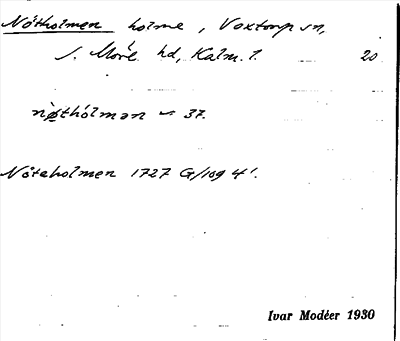 Nötholmen holme, Voxtorp sn,
S. Möre hd, Kalm. l. 20
nø̀thólmən ~ 37.
Nöteholmen 1727 G/109 4'.
Ivar Modéer 1930